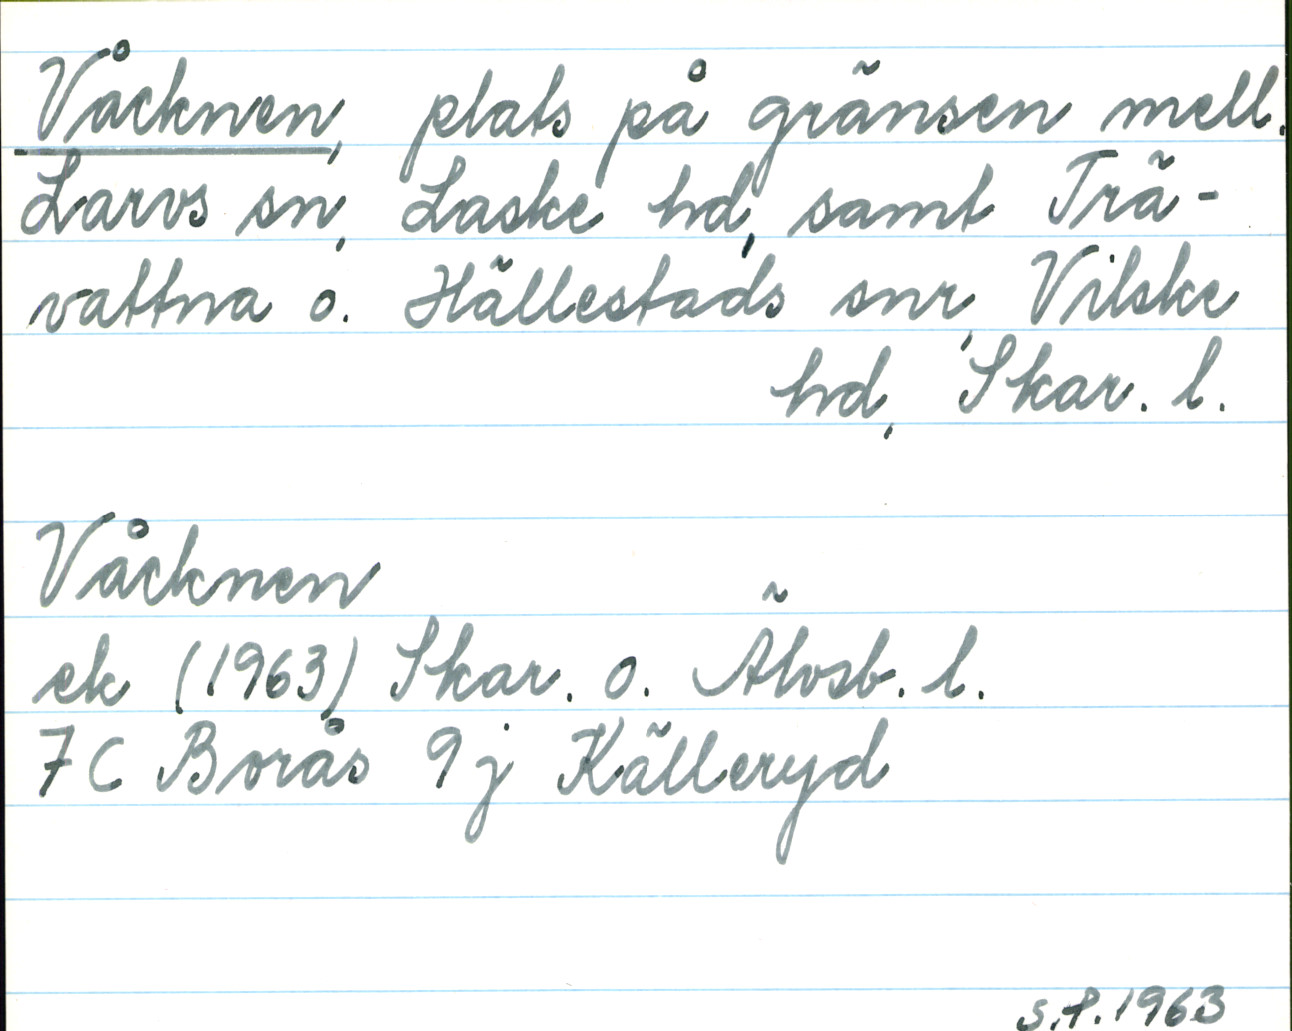 Våcknen, plats på gränsen mell.
Larvs sn, Laske hd, samt Trä-
vattna o. Hällestads snr, Vilske
hd, Skar. l.
Våcknen
ek (1963) Skar. o. Älvsb. l.
7C Borås 9j Källeryd
S.P. 1963